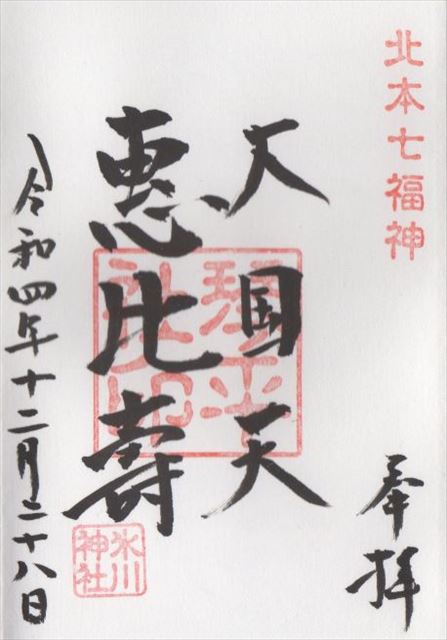 北本七福神
奉拝
大国天
恵比寿
令和四年十二月二十八日
琴平社印
氷川神社